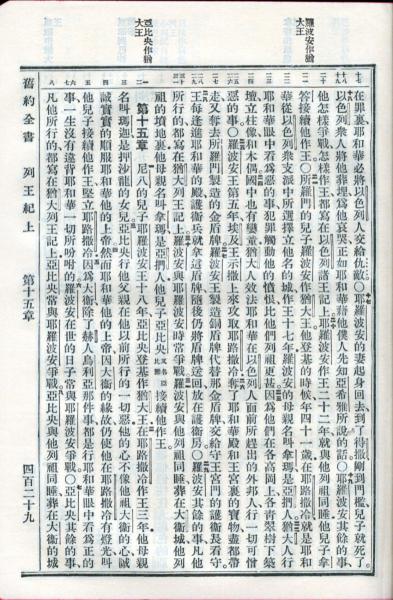 羅波安作猶大王
在罪裏耶和華必將以色列人交給仇敵〇耶羅波安的妻起身回去到了得撒剛到門檻兒子就死了
以色列眾人將他葬埋為他哀哭正如耶和華藉他僕人先知亞希雅所說的話〇耶羅波安其餘的事
他怎樣爭戰怎樣作王都寫在以色列諸王記上耶羅波安作王二十二年就與他列祖同睡他兒子拿
答接續他作王〇所羅門的兒子羅波安作猶大王他登基的時候年四十一歲在耶路撒冷就是耶和
華從以色列眾支派中所選擇立他名的城作王十七年羅波安的母親名叫拿瑪是亞捫人猶大人行
耶和華眼中看為惡的事犯罪觸動他的憤恨比他們列祖更甚因為他們在各高岡上各青翠樹下築
壇立柱像和木偶國中也有孌童猶大人效法耶和華在以色列人面前所趕出的外邦人行一切可憎
惡的事〇羅波安王第五年埃及王示撒上來攻取耶路撒冷奪了耶和華殿和王宮裏的寶物盡都帶
走又奪去所羅門製造的金盾牌羅波安王製造銅盾牌代替那金盾牌交給守王宮門的護衛長看守
王每逢進耶和華的殿護衛兵就拿這盾牌隨後仍將盾牌送回放在護衛房〇羅波安其餘的事凡他
所行的都寫在猶大列王記上羅波安與耶羅波安時常爭戰羅波安與他列祖同睡葬在大衛城他列
祖的墳地裏他母親名叫拿瑪是亞捫人他兒子亞比央又名亞比雅接續他作王
亞比央作猶大王
第十五章 尼八的兒子耶羅波安王十八年亞比央登基作猶大王在耶路撒冷作王三年他母親
名叫瑪迦是押沙龍的女兒亞比央行他父親在他以前所行的一切惡他的心不像他祖大衛的心誠
誠實實的順服耶和華他的上帝然而耶和華他的上帝因大衛的緣故仍使他在耶路撒冷有燈光叫
他兒子接續他作王堅立耶路撒冷因為大衛除了赫人烏利亞那件事都是行耶和華眼中看為正的
事一生沒有違背耶和華一切所吩咐的羅波安在世的日子常與耶羅波安爭戰〇亞比央其餘的事
凡他所行的都寫在猶大列王記上亞比央常與耶羅波安爭戰亞比央與他列祖同睡葬在大衛的城
舊約全書 列王紀上 第十五章 四百二十九